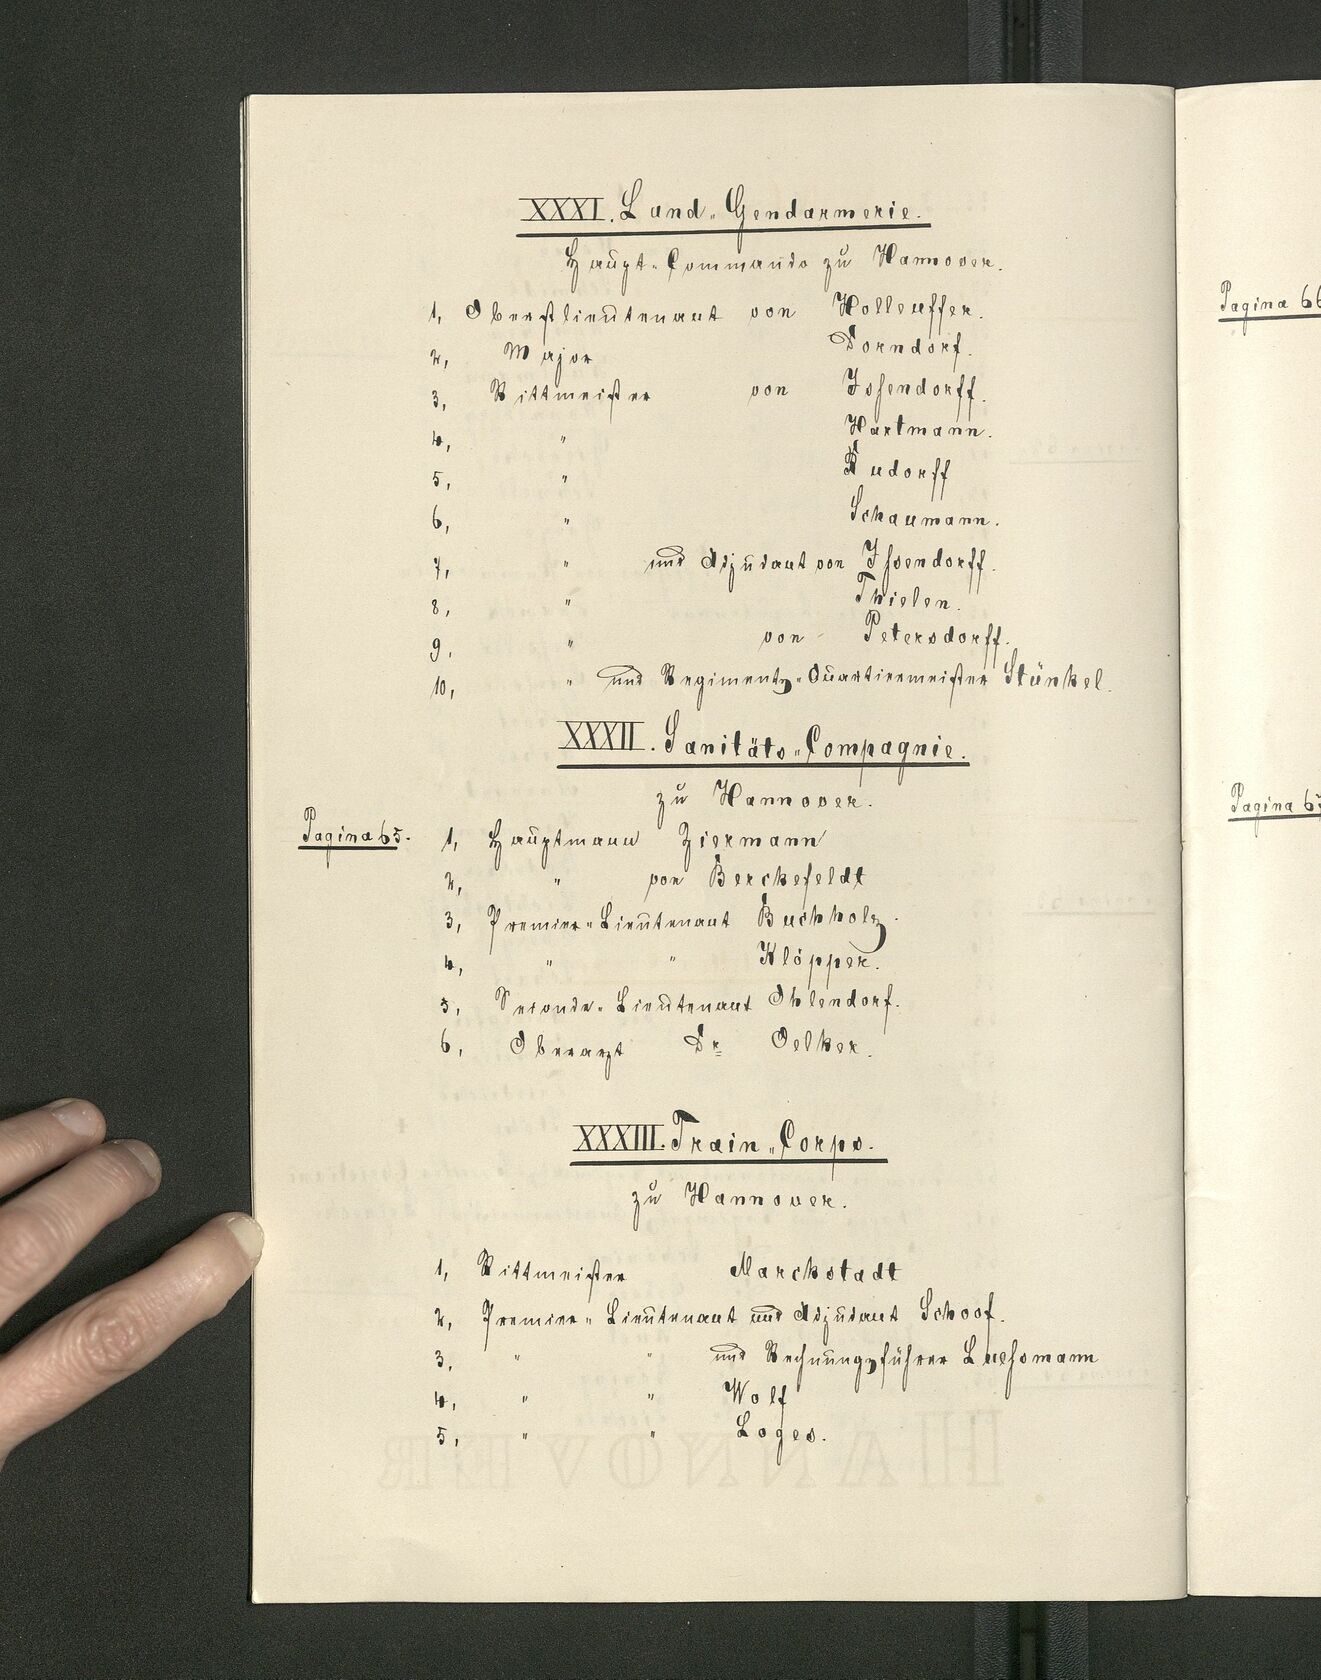 XXXI. Land-Gendarmerie.
Haupt-Commando zu Hannover.
1, Oberstlieutenant von Holleuffer.
2, Major Dorndorf.
3, Rittmeister von Issendorff.
4, " Hartmann.
5, " Rudorff
6, " Schaumann.
7, " und Adjudant von Issendorff.
8, " Thielen.
9, " von Petersdorff.
10, " und Regiments-Quartiermeister Stünkel.
XXXII. Sanitäts-Compagnie.
zu Hannover.
Pagina 65. 1, Hauptmann Ziermann
2, " von Berckefeldt
3, Premier-Lieutenant Buchholz.
4, " " Klöpper.
5, Seconde-Lieutenant Ohlendorf.
6, Oberarzt Dr. Oelker.
XXXIII. Train-Corps.
zu Hannover.
1, Rittmeister Marckstadt
2, Premier-Lieutenant und Adjudant Schoof.
3, " " und Rechnungsführer Luessmann
4, " " Wolf
5, " " Loges.
Pagina 66
Pagina 67